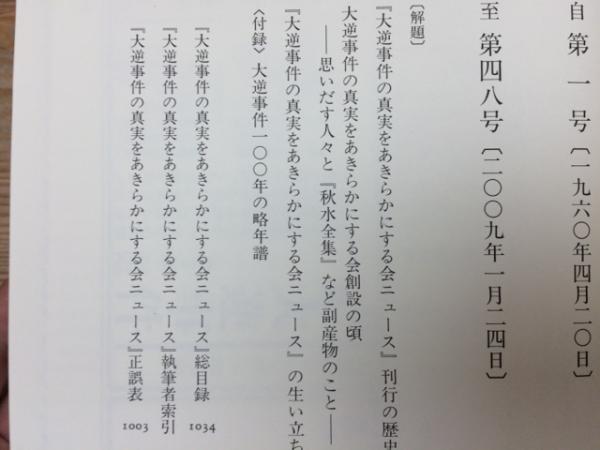 自 第一号〔一九六〇年四月二〇日〕
至 第四八号〔二〇〇九年一月二四日〕
〔解題〕
『大逆事件の真実をあきらかにする会ニュース』刊行の歴史
大逆事件の真実をあきらかにする会創設の頃
――思いだす人々と『秋水全集』など副産物のこと――
『大逆事件の真実をあきらかにする会ニュース』の生い立ち
〈付録〉大逆事件一〇〇年の略年譜
『大逆事件の真実をあきらかにする会ニュース』総目録 1034
『大逆事件の真実をあきらかにする会ニュース』執筆者索引
『大逆事件の真実をあきらかにする会ニュース』正誤表 1003